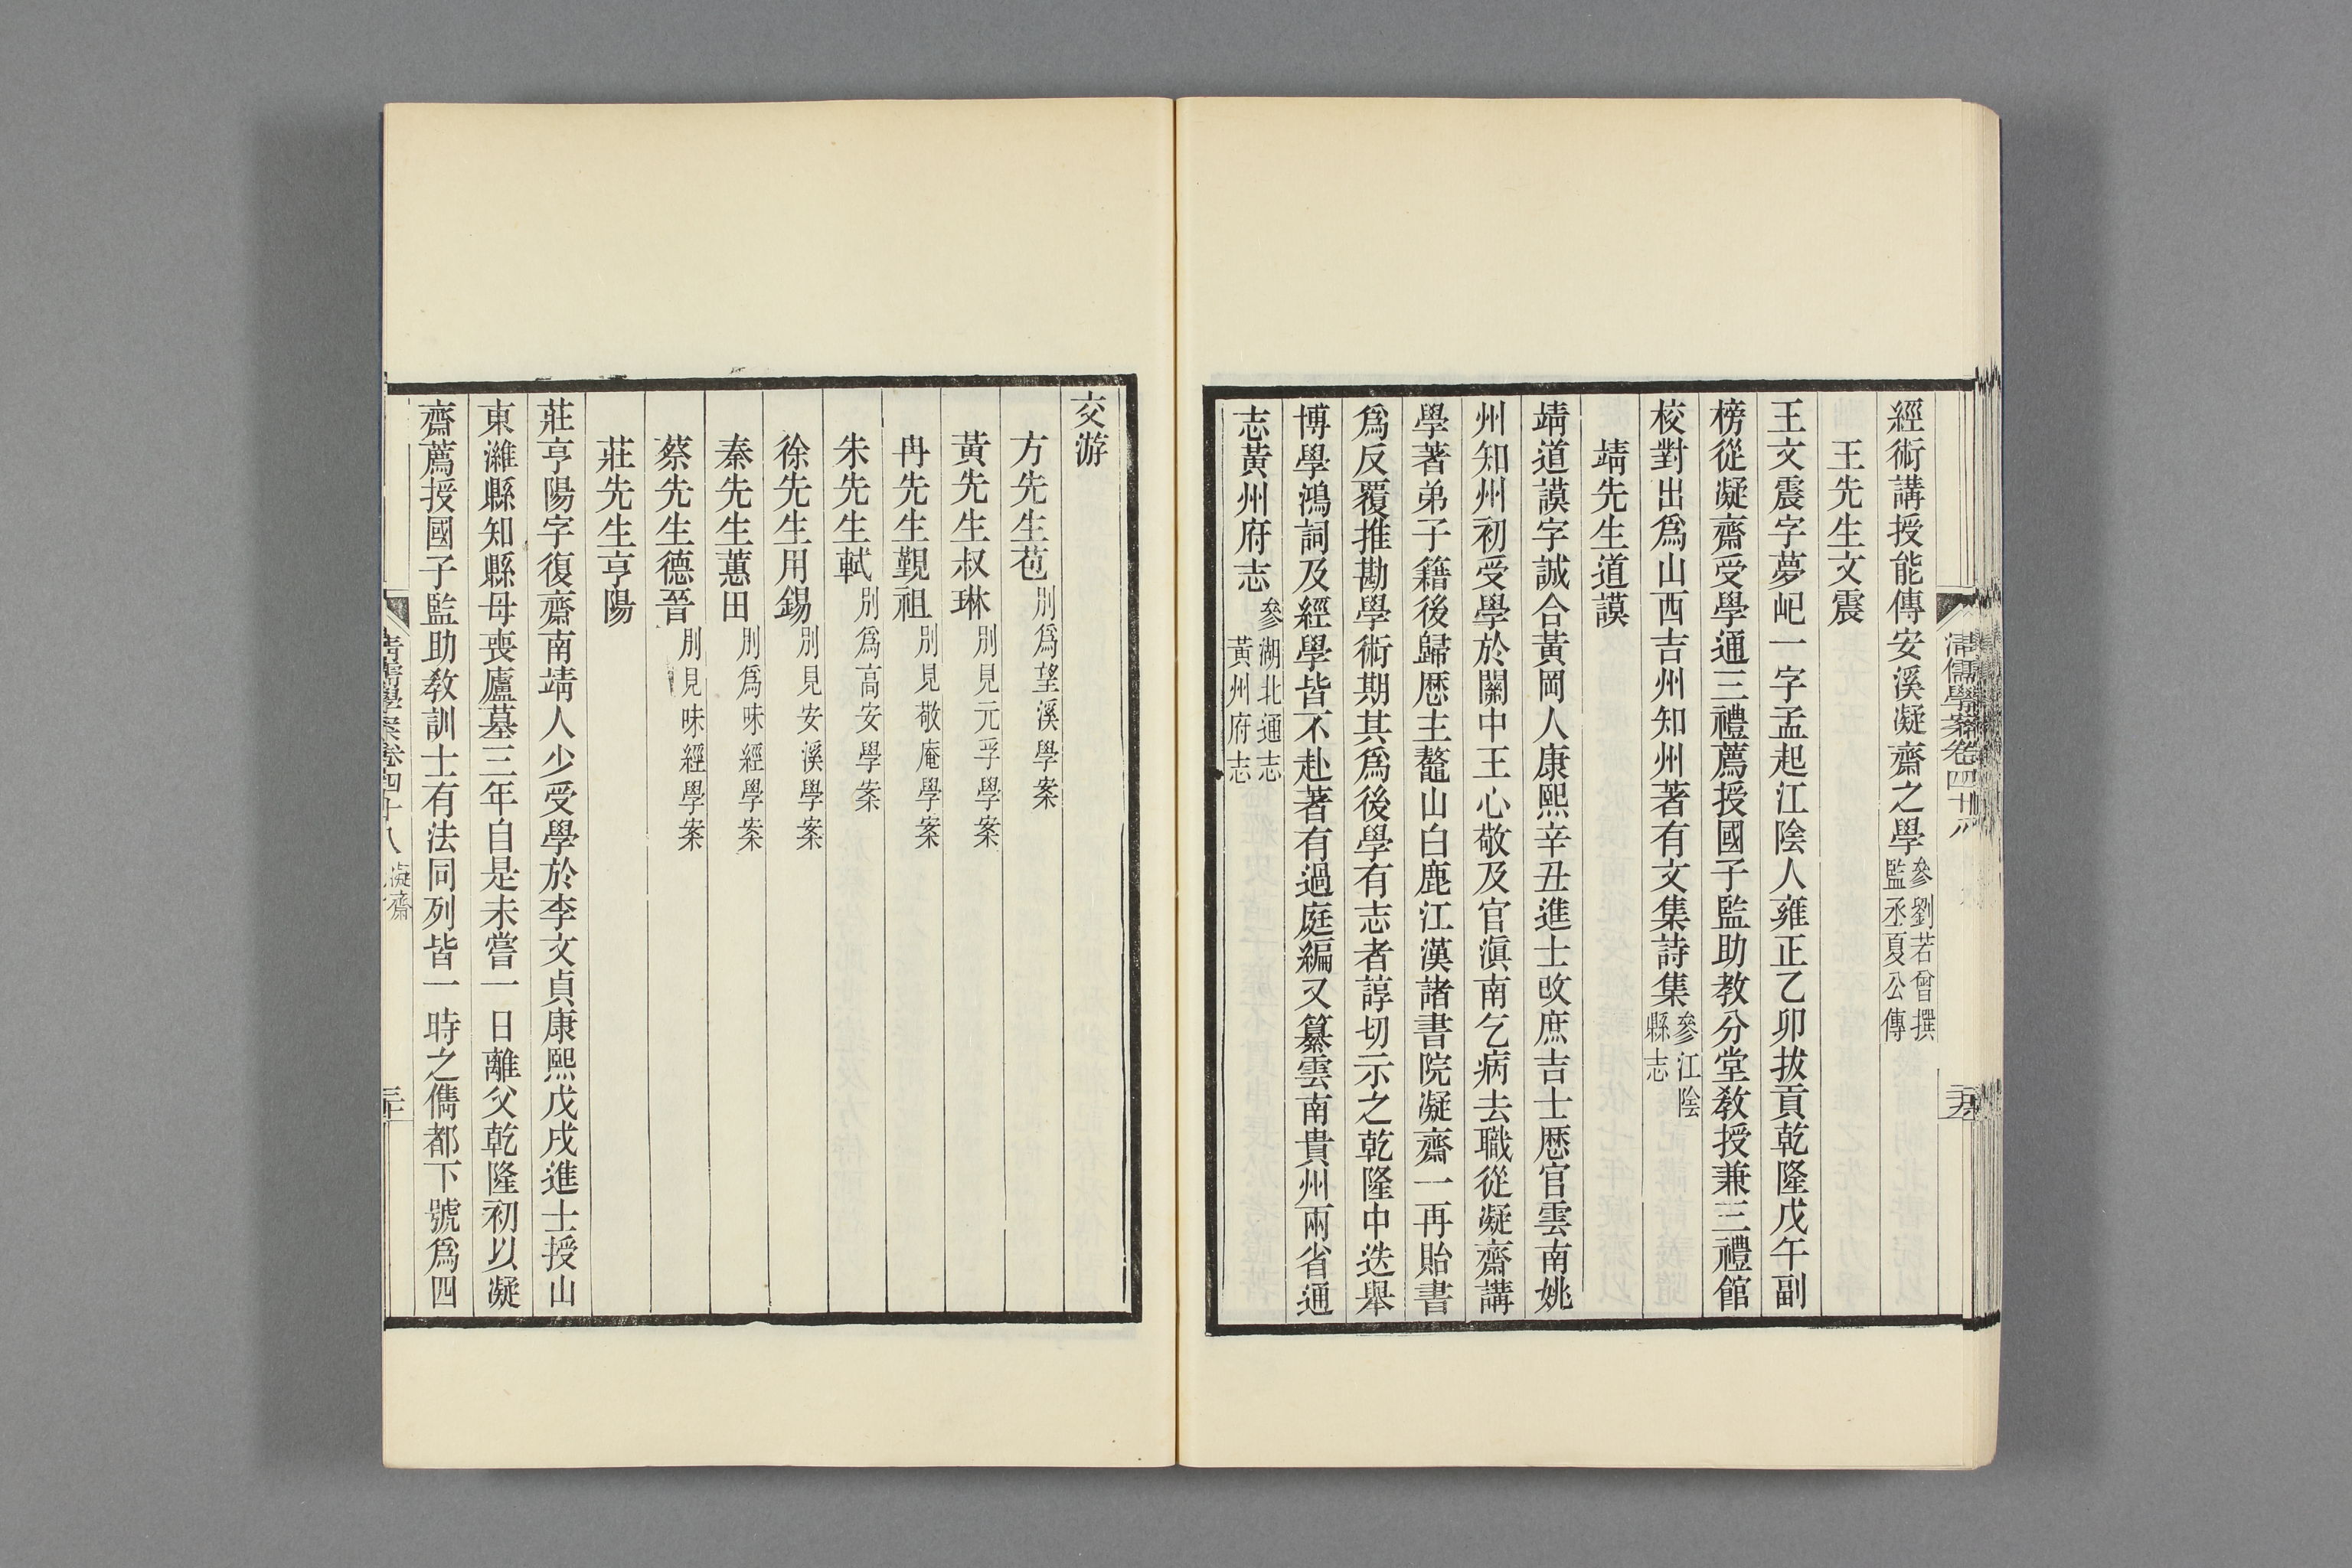 經術講授能傳安溪凝齋之學參劉若曾撰監丞夏公傳
王先生文震
王文震字夢𡵆一字孟起江陰人雍正乙卯拔貢乾隆戊午副
榜從凝齋受學通三禮薦授國子監助教分堂教授兼三禮館
校對出爲山西吉州知州著有文集詩集參江陰縣志
靖先生道謨
靖道謨字誠合黃岡人康熙辛丑進士改庶吉士歷官雲南姚
州知州初受學於關中王心敬及官滇南乞病去職從凝齋講
學著弟子籍後歸歷主鼇山白鹿江漢諸書院凝齋一再貽書
爲反覆推勘學術期其爲後學有志者諄切示之乾隆中迭舉
博學鴻詞及經學皆不赴著有過庭編又纂雲南貴州兩省通
志黃州府志參湖北通志黃州府志
清儒學案卷四十八
交游
方先生苞別爲望溪學案
黃先生叔琳別見元孚學案
冉先生覲祖別見敬庵學案
朱先生軾別爲高安學案
徐先生用錫別見安溪學案
秦先生蕙田別爲味經學案
蔡先生德晉別見味經學案
莊先生亨陽
莊亨陽字復齋南靖人少受學於李文貞康熙戊戌進士授山
東濰縣知縣母喪廬墓三年自是未嘗一日離父乾隆初以凝
齋薦授國子監助教訓士有法同列皆一時之儁都下號爲四
清儒學案卷四十八 凝齋